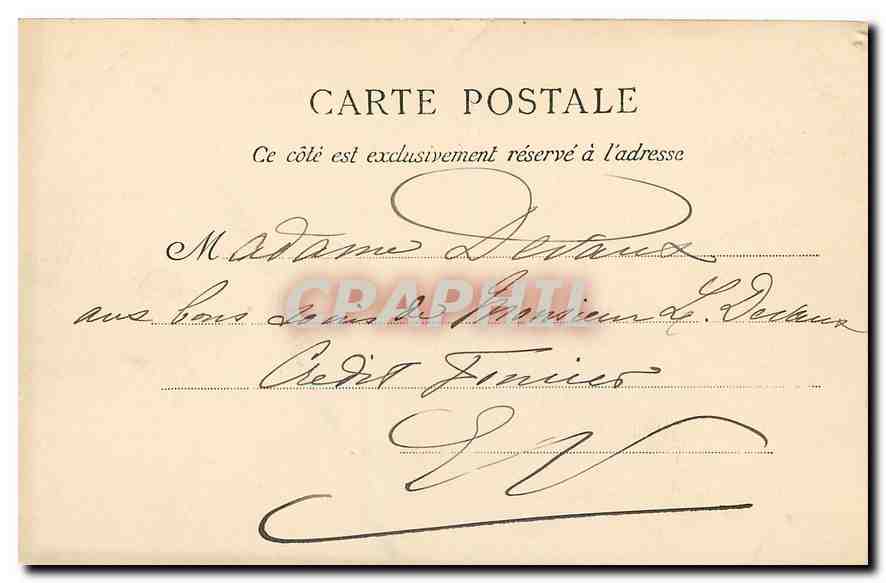 CARTE POSTALE
Ce côté est exclusivement réservé à l'adresse
Madame Devaux
aux bons soins de Monsieur L. Devaux
CRAPHIL
Credit Foncier
EV